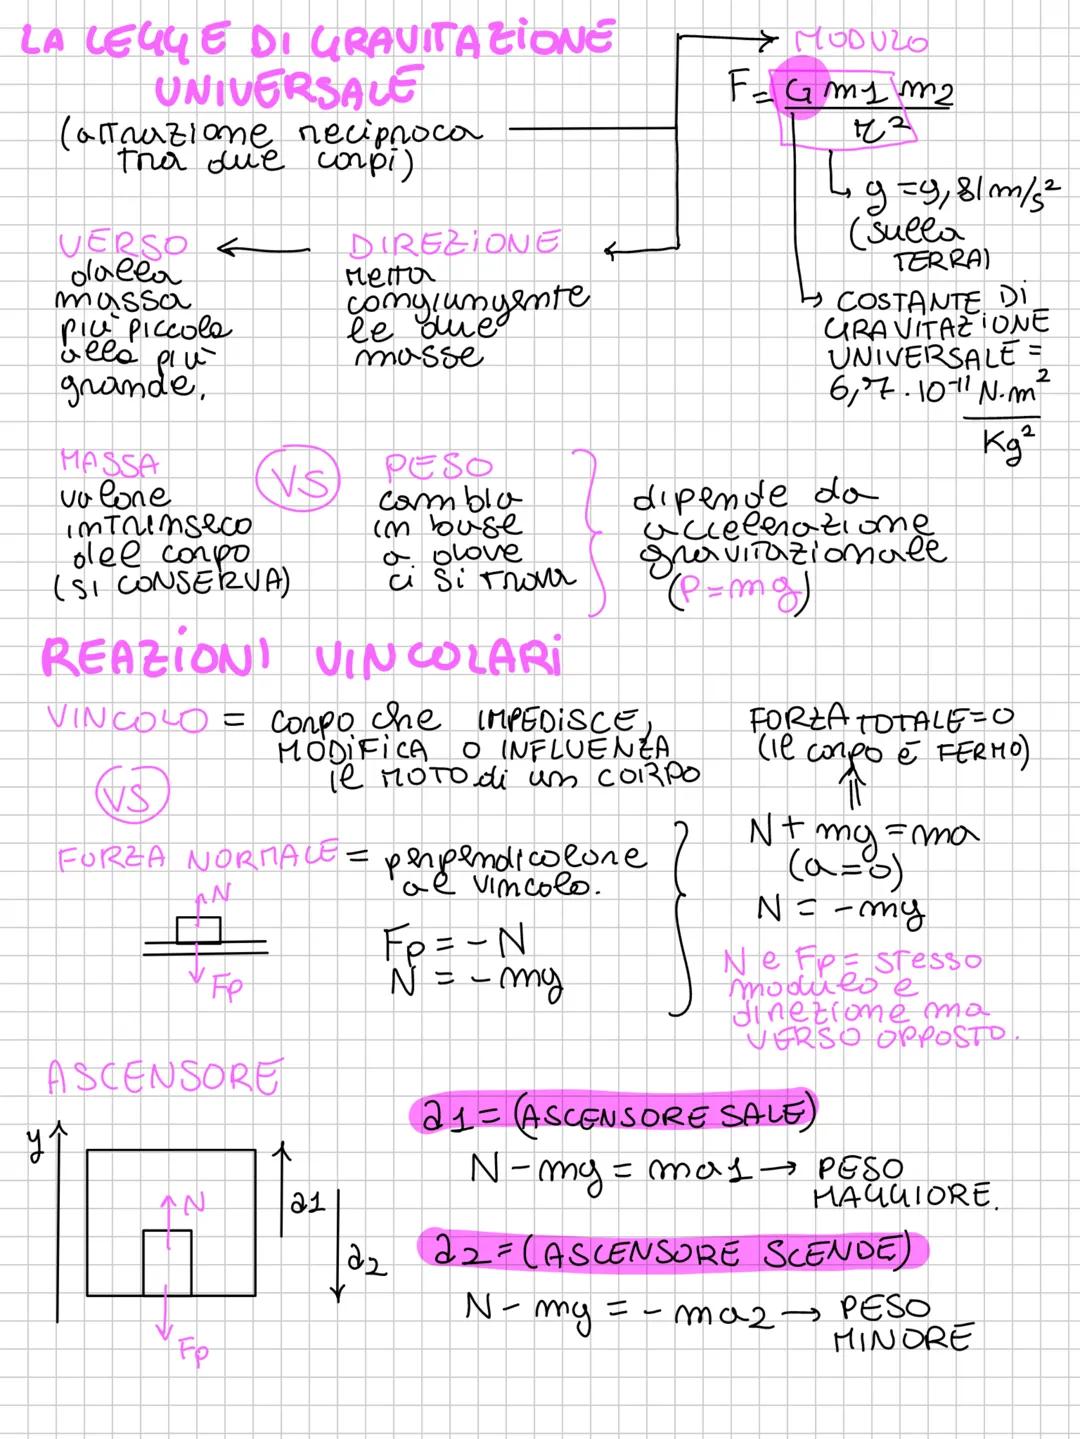 LA LEGGE DI GRAVITAZIONE
UNIVERSALE
(attrazione reciproca
tra due corpi)
MODULO
F = G m1 m2
r²
g = 9,81 m/s²
(sulla
TERRA)
COSTANTE DI
GRAVITAZIONE
UNIVERSALE =
6,7 · 10⁻¹¹ N·m²
Kg²
DIREZIONE
retta
congiungente
le due
masse
VERSO
dalla
massa
più piccola
alla più
grande.
MASSA
valore
intrinseco
del corpo
(SI CONSERVA)
VS
PESO
cambia
in base
a dove
ci si trova
dipende da
accelerazione
gravitazionale
(P=mg)
REAZIONI VINCOLARI
VINCOLO = corpo che IMPEDISCE,
MODIFICA O INFLUENZA
il MOTO di un CORPO
VS
FORZA NORMALE = perpendicolare
al vincolo.
N
Fp
Fp = -N
N = -mg
FORZA TOTALE = 0
(il corpo è FERMO)
N + mg = ma
(a=0)
N = -mg
N e Fp = stesso
modulo e
direzione ma
VERSO OPPOSTO.
ASCENSORE
y
N
Fp
a1
a2
a1 = (ASCENSORE SALE)
N - mg = ma1 → PESO
MAGGIORE.
a2 = (ASCENSORE SCENDE)
N - mg = - ma2 → PESO
MINORE